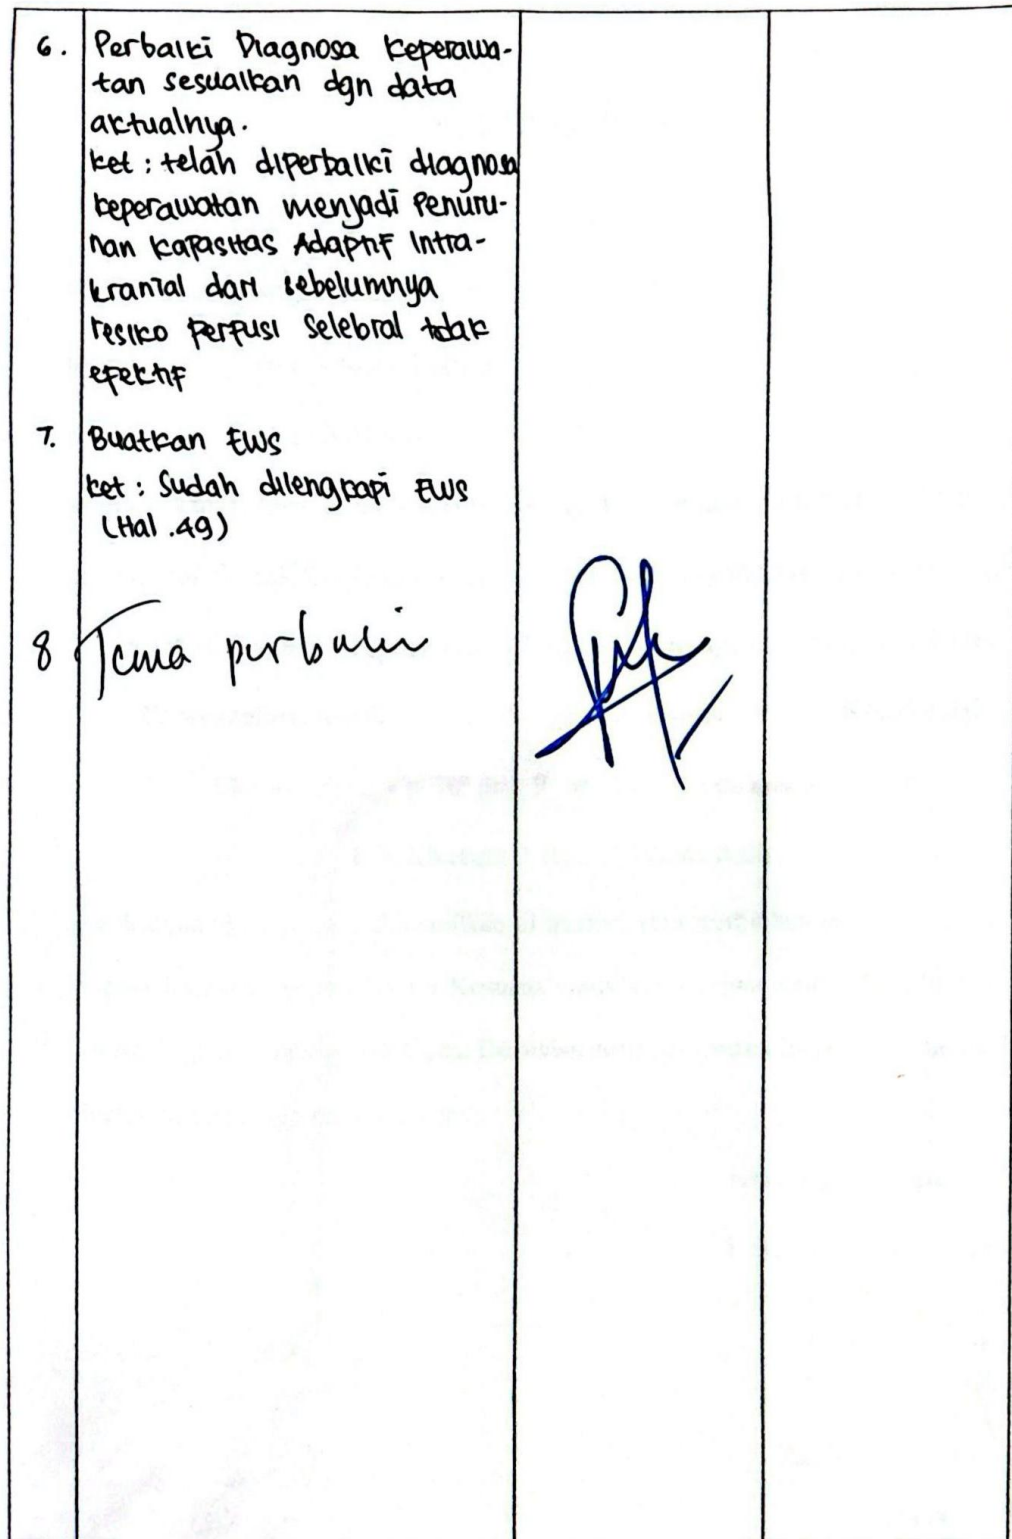 6. Perbaiki Diagnosa Keperawa-
tan sesuaikan dgn data
aktualnya.
ket : telah diperbaiki diagnosa
keperawatan menjadi Penuru-
nan Kapasitas Adaptif Intra-
kranial dari sebelumnya
resiko perfusi Selebral tidak
efektif
7. Buatkan EWS
ket : Sudah dilengkapi EWS
(Hal .49)
8 perbaiki